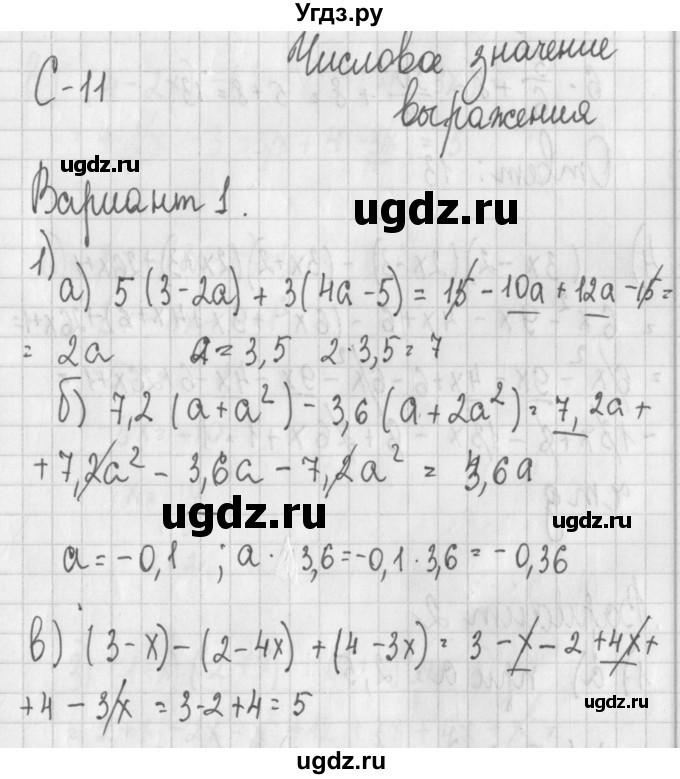 Угдз.ру
Числовое значение
С-11
выражения
ugdz.ru
Вариант 1.
ugdz.ru
1)
а) 5 (3-2a) + 3(4a-5) = 15 - 10a + 12a - 15 =
= 2a a = 3,5 2·3,5 = 7
б) 7,2 (a+a²) - 3,6 (a+2a²) = 7,2a +
+ 7,2a² - 3,6a - 7,2a² = 3,6a
ugdz.ru
ugdz.ru
a = -0,1 ; a · 3,6 = -0,1 · 3,6 = -0,36
в) (3-x) - (2-4x) + (4-3x) = 3 - x - 2 + 4x +
+ 4 - 3x = 3-2+4 = 5
ugdz.ru
ugdz.ru
ugdz.ru